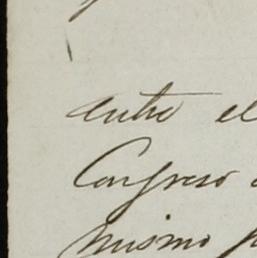 entre el
Congreso
mismo